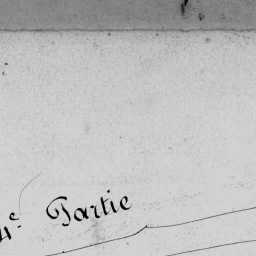 4e Partie